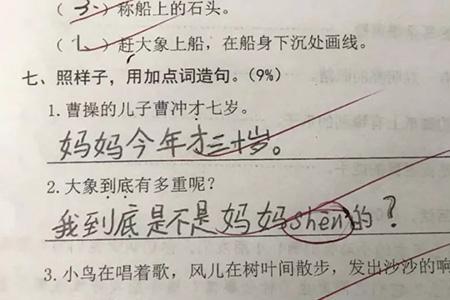 ( 3 )称船上的石头。
( 1 )赶大象上船，在船身下沉处画线。
七、照样子，用加点词造句。(9%)
1.曹操的儿子曹冲才七岁。
妈妈今年才三十岁。
2.大象到底有多重呢？
我到底是不是妈妈shēn的？
3.小鸟在唱着歌，风儿在树叶间散步，发出沙沙的响